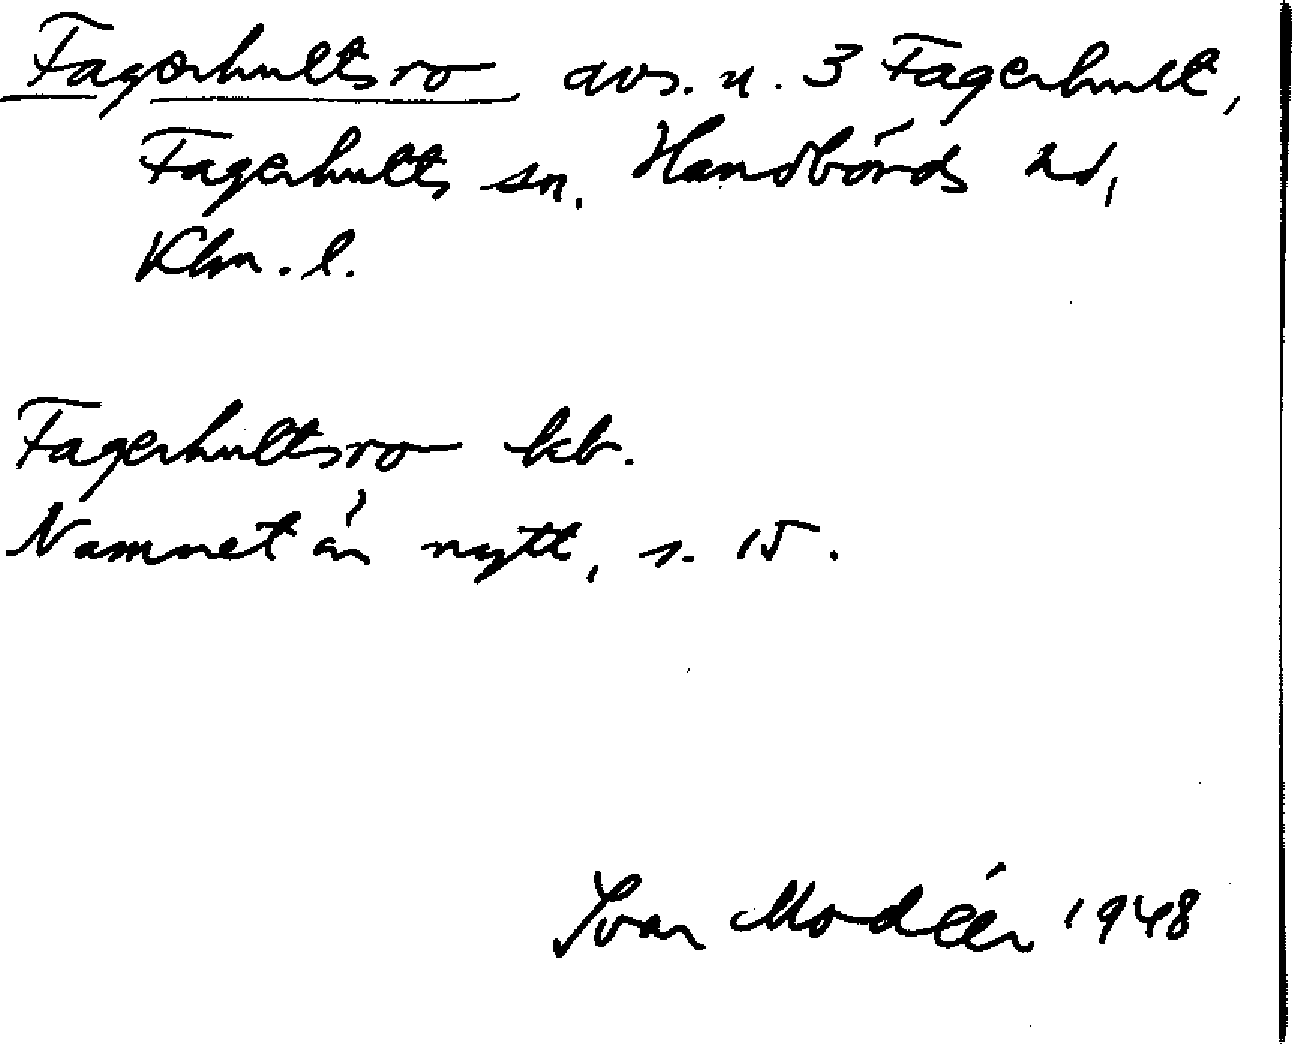 Fagerhultsro avs. u. 3 Fagerhult,
Fagerhults sn. Handbörds hd,
Klm. l.
Fagerhultsro kb.
Namnet är nytt, s. 15.
Ivar Modéer 1948